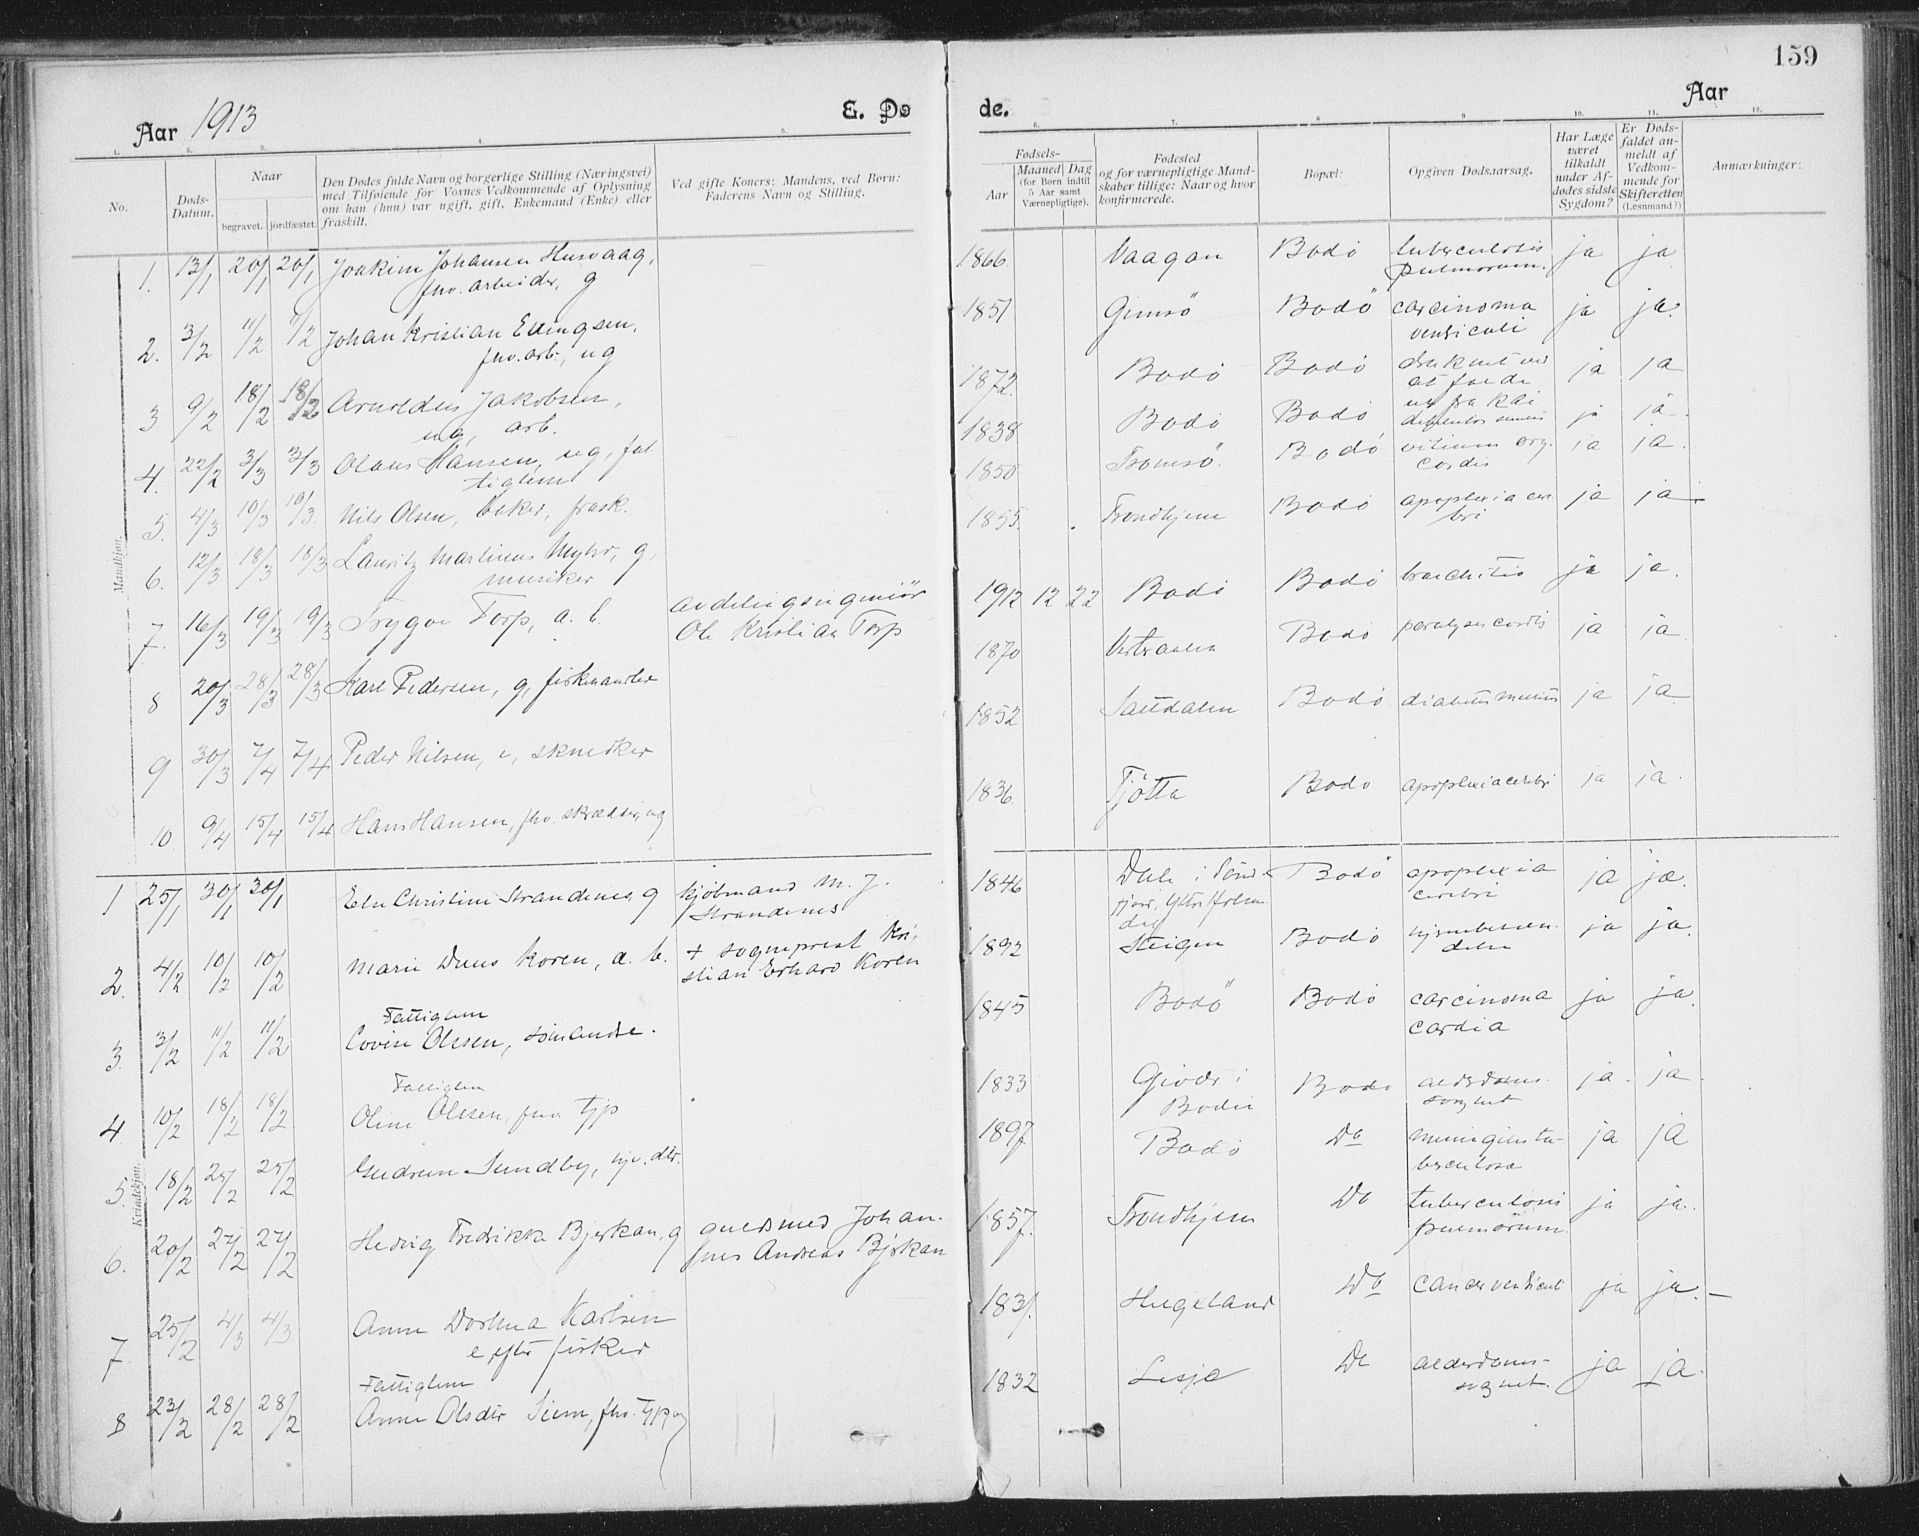 159
Aar 1913
E. Dø
de.
Aar
1.
2.
3.
4.
5.
6.
7.
8
9
10.
11.
12.
No.
Døds-
Datum.
Naar
begravet.
jordfæstet.
Den Dødes fulde Navn og borgerlige Stilling (Næringsvei)
med Tilføiende for Voxnes Vedkommende af Oplysning
om han (hun) var ugift, gift, Enkemand (Enke) eller
fraskilt.
Ved gifte Koners: Mandens, ved Børn:
Faderens Navn og Stilling.
Fødsels-
Aar
Maaned
Dag
(for Børn indtil
5 Aar samt
Værnepligtige).
Fødested
og for værnepligtige Mand-
skaber tillige: Naar og hvor
konfirmerede.
Bopæl:
Opgiven Dødsaarsag.
Har Læge
været
tilkaldt
under Af-
dødes sidste
Sygdom?
Er Døds-
faldet an-
meldt af
Vedkom-
mende for
Skifteretten
(Lesnmand?)
Anmærkninger:
Mandkjøn.
1. 13/1 20/1 20/1 Joakim Johansen Husvaag,
fhv. arbeider, g
1866 Vaagan Bodö tuberculosis ja ja
pulmorum.
2. 3/2 11/2 11/2 Johan Kristian Ellingsen,
fhv. arb., ug
1851 Gimsö Bodö carcinoma ja ja.
ventriculi
3 9/2 18/2 18/2 Arnoldus Jakobsen,
ug, arb.
1872. Bodö Bodö druknet ved ja ja
at falde
ut fra kai
4. 22/2 3/3 3/3 Olaus Hansen, ug, fat
tiglem
1838 Bodö Bodö dementia senilis ja ja.
5. 4/3 10/3 10/3. Nils Olsen, baker, frask.
1850 Tromsö. Bodö vitium org. ja ja.
cordis
6. 12/3 18/3 18/3 Lauritz Martinus Myhr, g,
musiker
1855 Trondhjem Bodö apoplexia cere ja ja.
bri
7. 16/3 19/3 19/3 Trygve Torp, a. b. avdelingsingeniör
Ole Kristian Torp
1912 12 22 Bodö Bodö bronchitis ja ja.
8 20/3 28/3 28/3 Karl Pedersen, g, fiskehandler
1870 Vesteraalen Bodö paralysis cordis ja ja.
9 30/3 7/4 7/4 Peder Nilsen, e, snedker
1852 Saltdalen Bodö diabetes mellitus ja ja
10 9/4 15/4 15/4 Hans Hansen, fhv. skrædder, ug
1836 Tjøtta Bodö apoplexia cerebri ja ja.
Kvindekjøn.
1 25/1 30/1 30/1 Christine Strandenes, g kjöbmand M. J.
Strandenes
1846 i Bodö apoplexia ja ja.
cerebri
2. 4/2 10/2 10/2 Marie Duus Koren, a. b. + sogneprest Kri
stian Erhard Koren
1892 Steigen Bodö hjernebetæn ja ja.
delse
Fattiglem
3. 3/2 11/2 11/2 Lovise Olssen, sömandse.
1845 Bodö Bodö carcinoma ja ja
cardia
Fattiglem
4 10/2 18/2 18/2 Oline Olssen, fhv. tjp
1833 Givær i Bodö alderdoms ja. ja.
Bodin svaghet
5. 18/2 25/2 25/2 Gudrun Sundby, hjv. dtr.
1897 Bodö Do meningitis tu- ja ja
berculosa
6. 20/2 27/2 27/2 Hedvig Fredrikke Bjerkan, g guldsmed Johan-
nes Andreas Bjerkan
1857. Trondhjem Do tuberculosis ja ja.
pulmorum
7. 25/2 4/3 4/3 Anne Dorthea Karlsen
e, efter fisker
1831. Helgeland Do cancer ventriculi ja ja.
Fattiglem
8 23/2 28/2 28/2 Anne Olsdtr Siem, fhv. tjp ug
1832 Lesja Do alderdoms- ja ja.
svaghet.